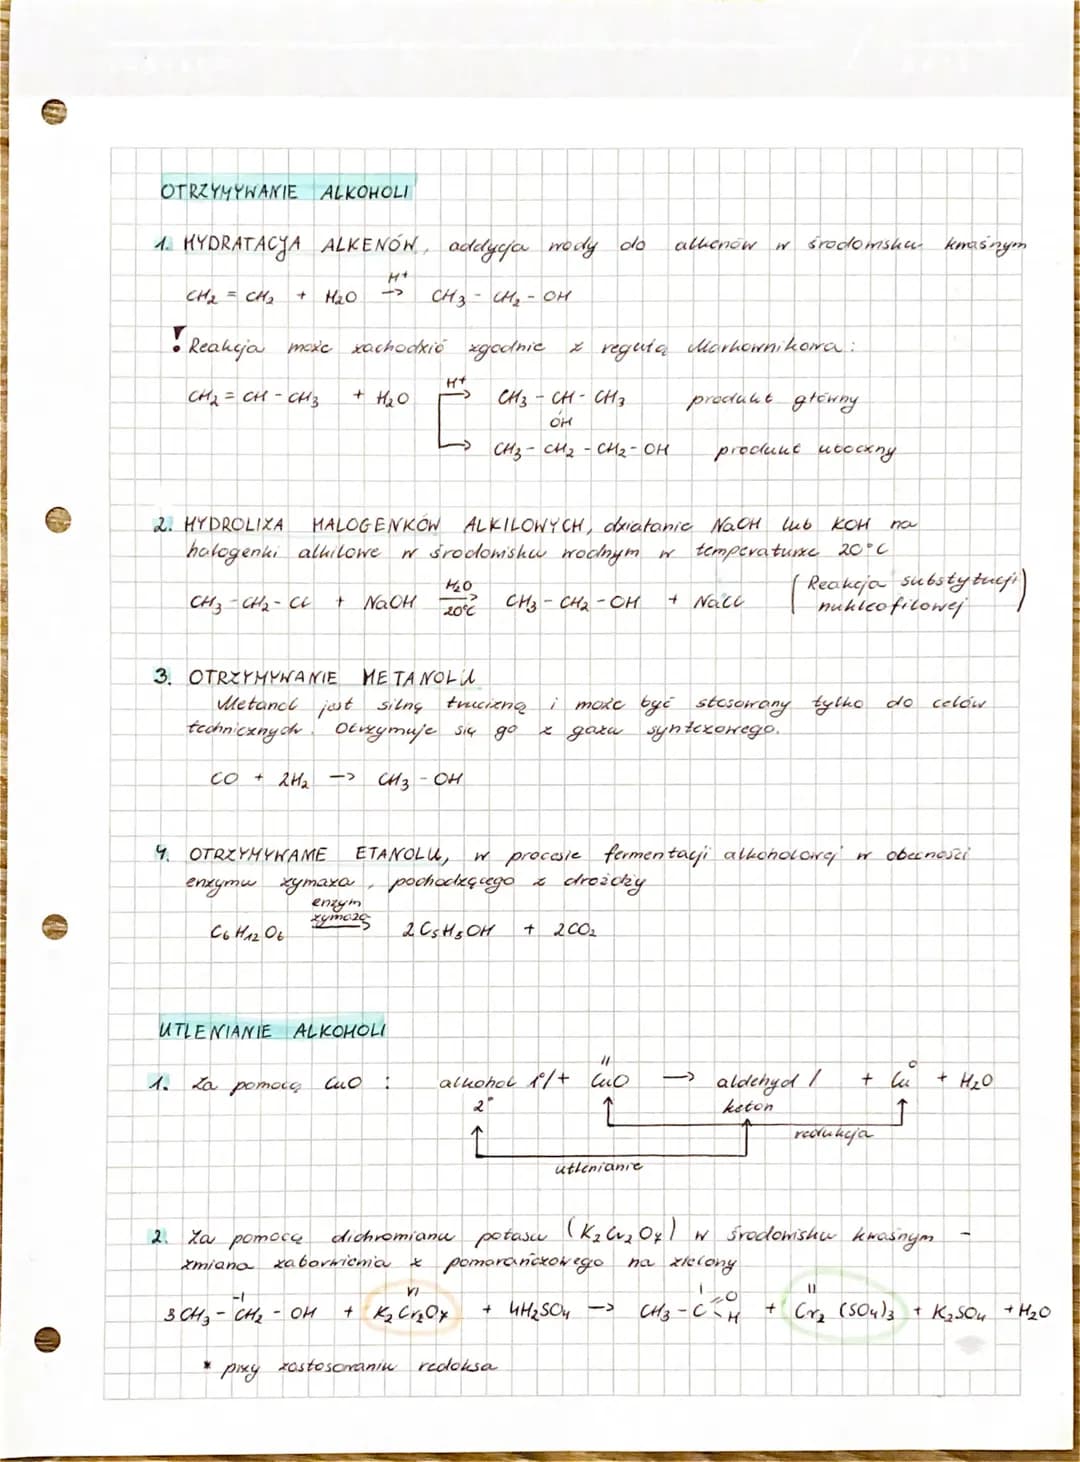 OTRZYMYWANIE ALKOHOLI
1. HYDRATACJA ALKENÓW, addycja wody do alkenów w środowisku kwaśnym
H+
CH2 = CH2 + H2O -> CH3 - CH2 - OH
! Reakcja może zachodzić zgodnie z regułą Markownikowa:
CH2 = CH - CH3 + H2O H+ -> CH3 - CH - CH3 produkt główny
OH
-> CH3 - CH2 - CH2 - OH produkt uboczny
2. HYDROLIZA HALOGENKÓW ALKILOWYCH, działanie NaOH lub KOH na
halogenki alkilowe w środowisku wodnym w temperaturze 20°C
CH3 - CH2 - Cl + NaOH H2O -> 20°C CH3 - CH2 - OH + NaCl (Reakcja substytucji
nukleofilowej)
3. OTRZYMYWANIE METANOLU
Metanol jest silną trucizną i może być stosowany tylko do celów
technicznych. Otrzymuje się go z gazu syntezowego.
CO + 2H2 -> CH3 - OH
4. OTRZYMYWANIE ETANOLU, w procesie fermentacji alkoholowej w obecności
enzymu zymaza, pochodzącego z drożdży
enzym
zymaza
C6H12O6 -> 2C5H5OH + 2CO2
UTLENIANIE ALKOHOLI
1. Za pomocą CuO : alkohol 1°/ + II CuO -> aldehyd / + 0 Cu + H2O
2° keton
redukcja
utlenianie
2. Za pomocą dichromianu potasu (K2Cr2O7) w środowisku kwaśnym -
zmiana zabarwienia z pomarańczowego na zielony
-I VI I II
3CH3 - CH2 - OH + K2Cr2O7 + 4H2SO4 -> CH3 - C =O H + Cr2(SO4)3 + K2SO4 + H2O
* przy zastosowaniu redoksa